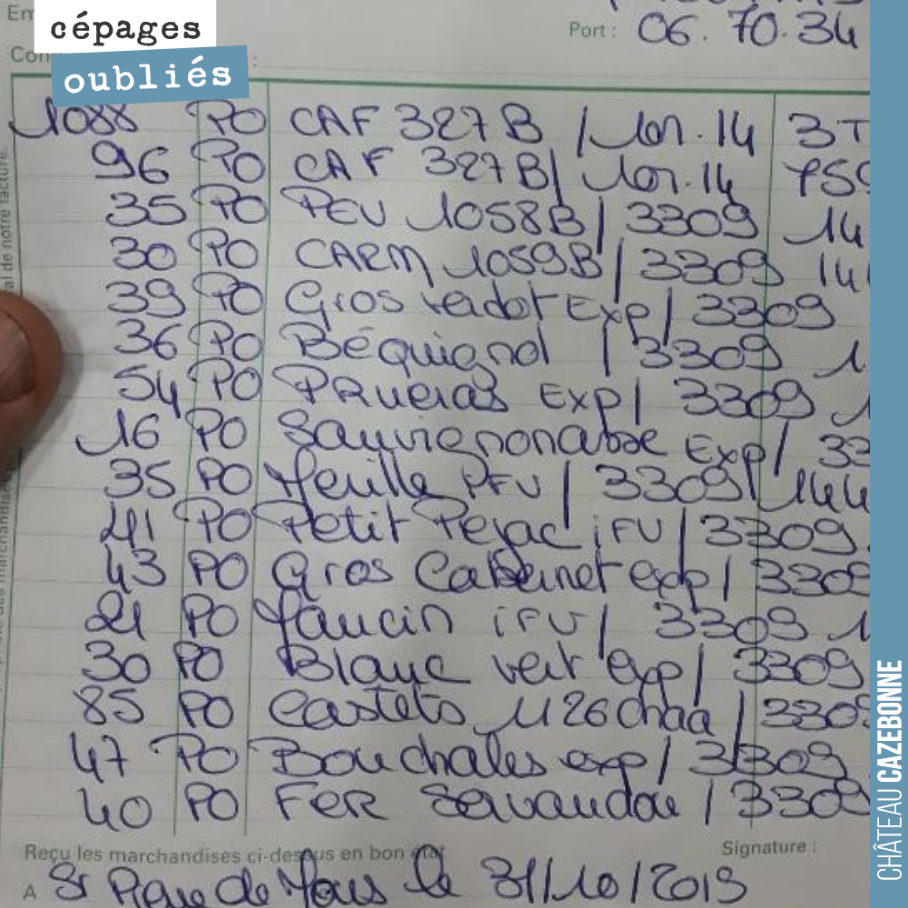 Em
cépages
oubliés
Con :
Port : 06.70.34
1088 PO CAF 327B / Mer.14 3T
96 PO CAF 327B/ Mer.14 759
35 PO PEV 1058B/ 3309 14
30 PO CARM 1059B/ 3309 141
39 PO Gros verdot Exp/ 3309
36 PO Béquignol / 3309 1
54 PO PRUERAS EXP/ 3309 1
16 PO Sauvignonasse Exp/ 33
35 PO PFU / 3309/ 144
41 PO Petit Pejac iFU / 3309
43 PO Gros Cabernet exp / 3309
21 PO iFU/ 3309 1
30 PO Blanc vert exp/ 3309
85 PO Castets 1126 chaa / 3309
47 PO Bouchales exp/ 3309
40 PO FER Servandou / 3309
Reçu les marchandises ci-dessus en bon état
Signature :
A St de le 31/10/2019
al de notre facture.
CHÂTEAU CAZEBONNE